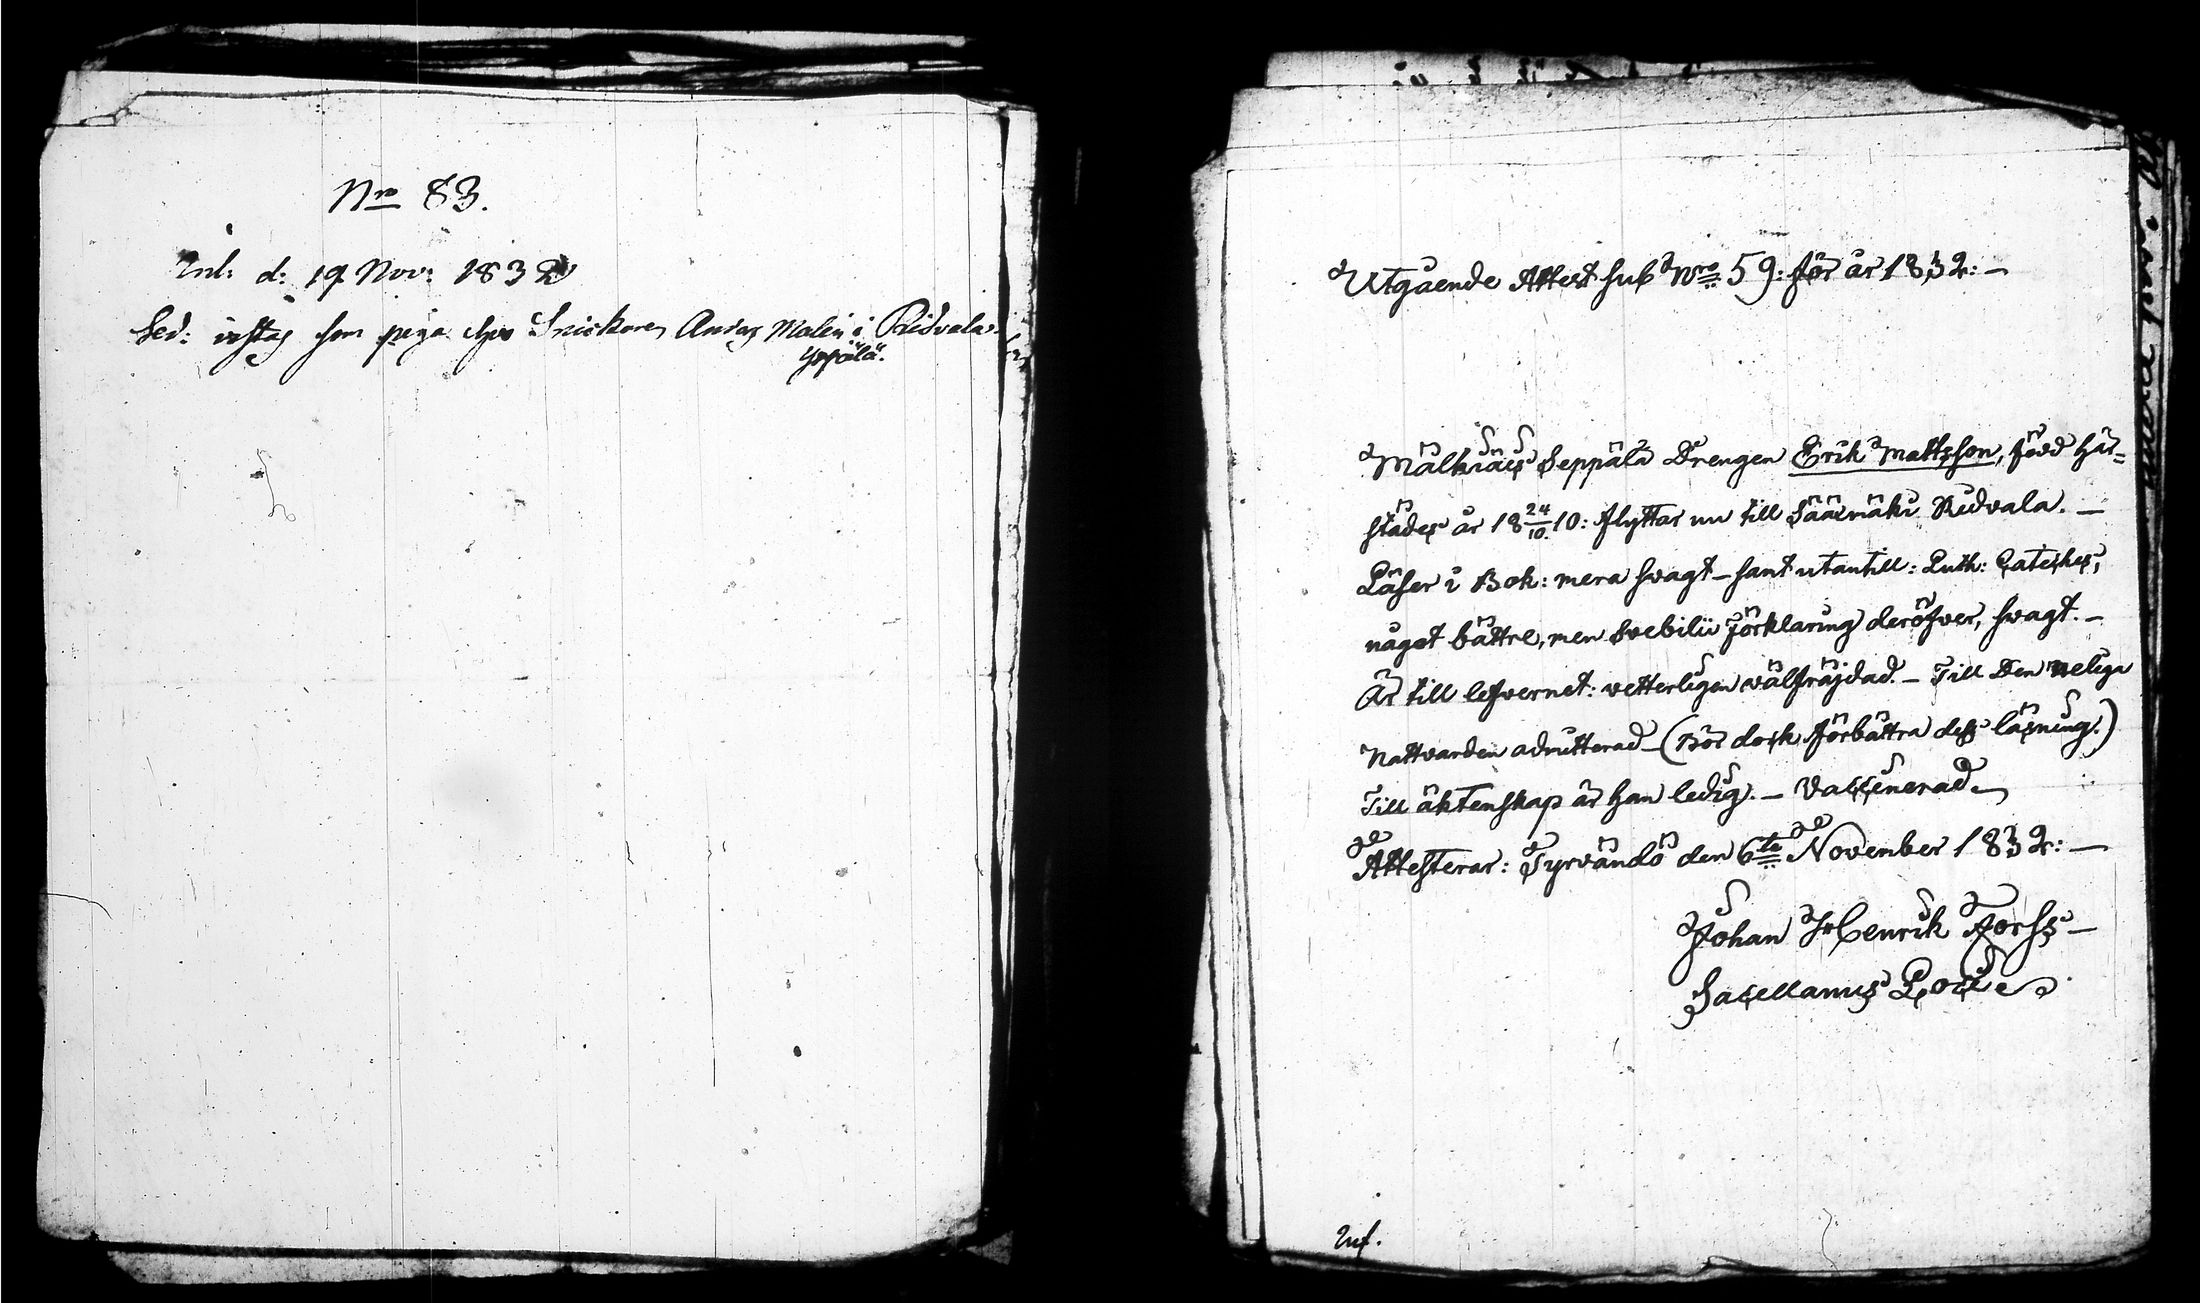 Nro 83.
Inl: d: 19 Nov: 1832
Sed: såsom piga hos Snickaren Anders Malin i Ridvala
Yppälä.
Utgående Attest sub Nro 59: för år 1832: —
Mälkiäis Seppälä Drengen Erik Mattsson, född här=
städes år 18 24/10. 10: flyttar nu till Sääxmäki Ridvala. —
Läser i Bok: mera svagt — samt utantill: Luth: Cateches,
något bättre, men Svebilii förklaring deröfver, svagt. —
Är till lefvernet: vetterligen välfräjdad. — Till Den Heliga
Nattvarden admitterad — (Bör dock förbättra dess läsning.)
Till äktenskap är han ledig. — Vaccinerad —
Attesterar: Tyrvändö den 6te November 1832: —
Johan Henrik Forss —
Sacellanus Loci